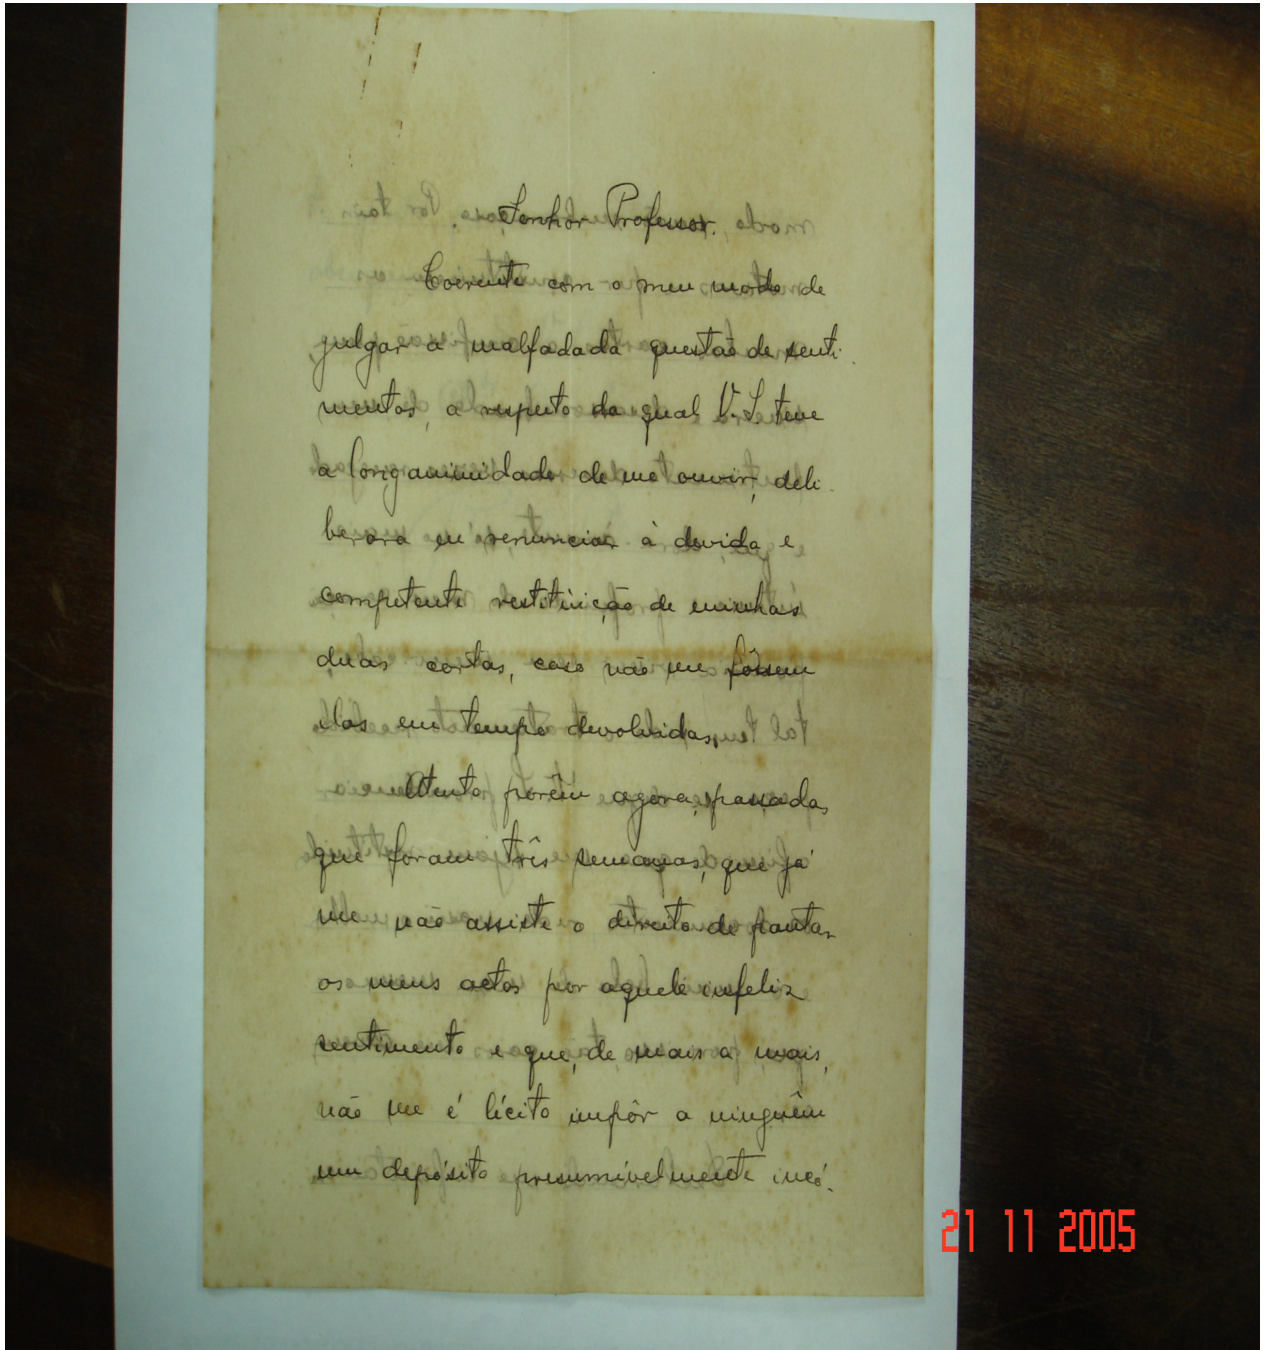 Senhor Professor.
Coerente com o meu modo de
julgar a malfadada questão de senti-
mentos, a respeito da qual V. S. teve
a longanimidade de me ouvir, deli-
berara eu renunciar à devida e
competente restituição de minhas
duas cartas, caso não me fôssem
elas em tempo devolvidas.
Atento porêm agora, passadas
que foram três semanas, que já
me não assiste o direito de pautar
os meus actos por aquele infeliz
sentimento e que, de mais a mais,
não me é lícito impôr a ninguêm
um depósito presumívelmente incó-
21 11 2005